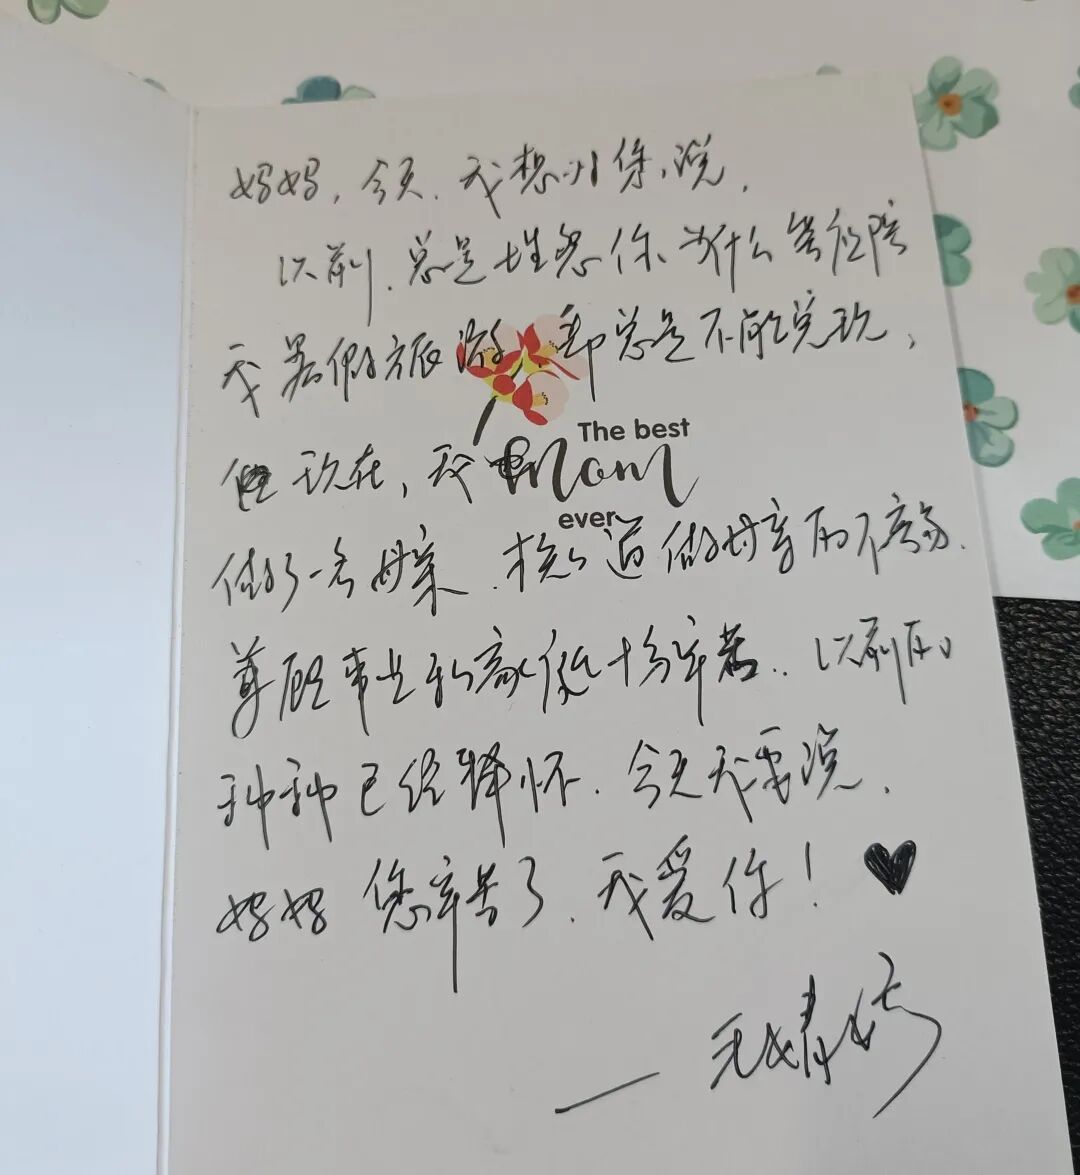 妈妈，今天，我想对你说，
以前，总是埋怨你为什么答应陪
我暑假旅游却总是不能兑现，
但现在，我也
The best
Mom
ever
做了一名母亲，才知道做母亲的不容易，
兼顾事业和家庭十分辛苦，以前的
种种已经释怀，今天我要说，
妈妈 您辛苦了，我爱你！♥